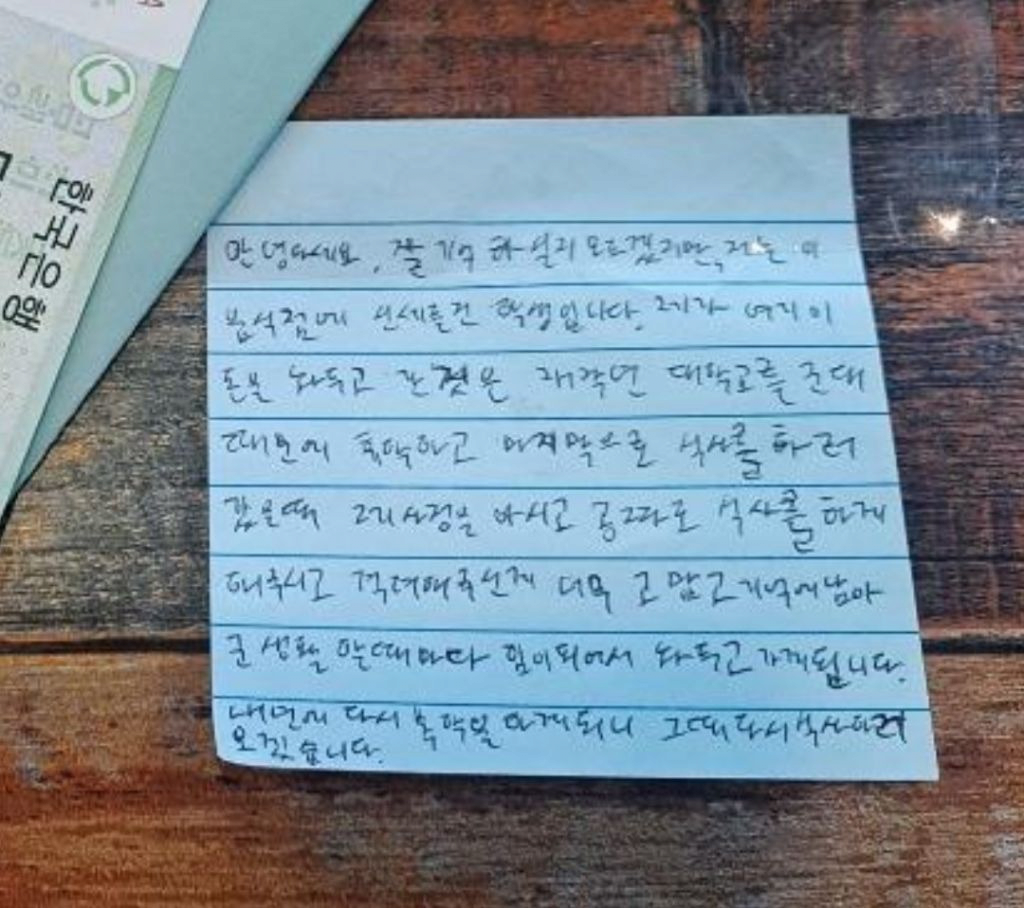 한국은행
안녕하세요, 잘 기억 하실지 모르겠지만, 저는 이
분식점에 신세를진 학생입니다. 제가 여기 이
돈을 놔두고 간것은 재작년 대학교를 군대
때문에 휴학하고 마지막으로 식사를 하러
갔을때 제 사정을 아시고 공짜로 식사를 하게
해주시고 격려해주신게 너무 고맙고 기억에남아
군 생활 할때마다 힘이되어서 놔두고 가게됩니다.
내년에 다시 복학을 하게되니 그때 다시 식사하러
오겠습니다.